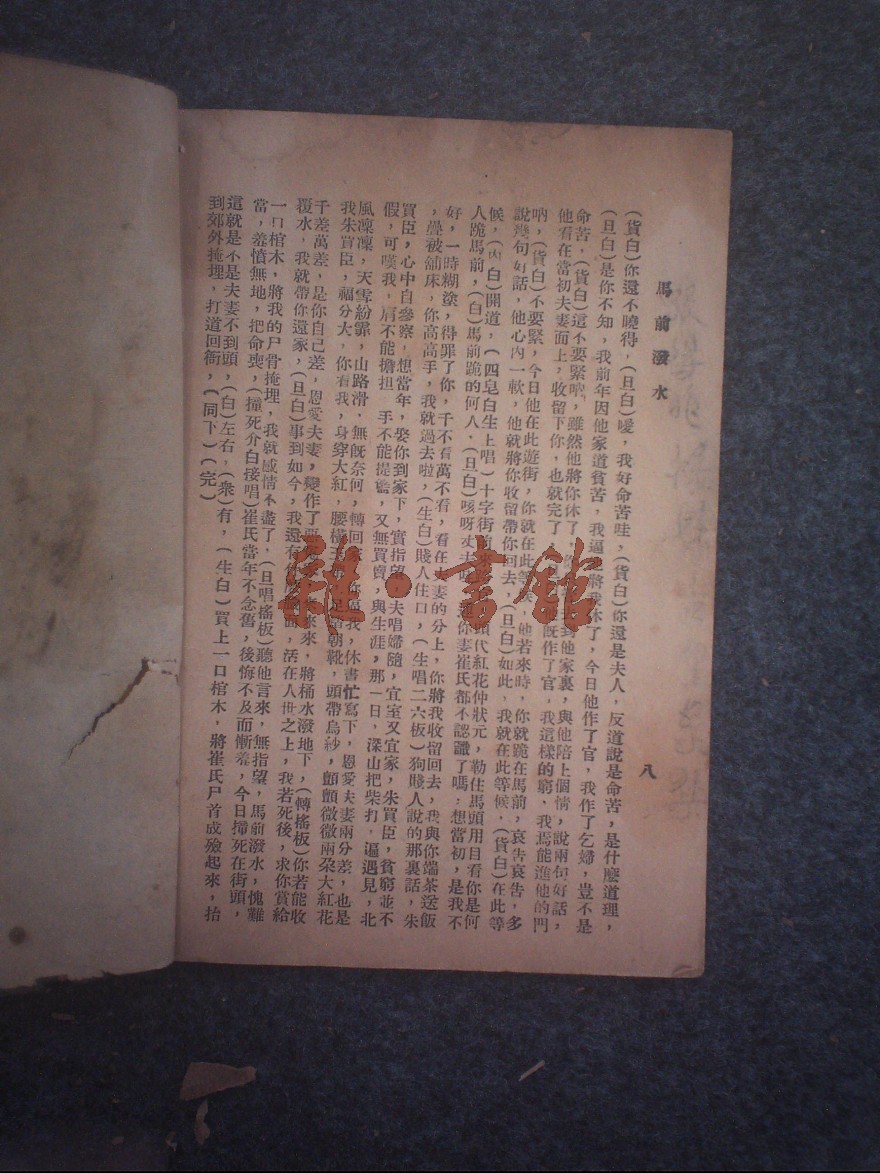 馬前潑水
八
(貨白)你還不曉得，(旦白)噯，我好命苦哇，(貨白)你還是夫人，反道說是命苦，是什麼道理，
(旦白)是你不知，我前年因他家道貧苦，我逼 將我休了，今日他作了官，我作了乞婦，豈不是
命苦，(貨白)這不要緊 ，雖然他將你休了， 到他家裏，與他陪上個情，說兩句好話，
他看在當初夫妻面上，收留下你，也就完了， 既作了官，我這樣的窮，我焉能進他的門
吶，(貨白)不要緊，今日他在此遊街，你就在此等 ，他若來時，你就跪在馬前，哀告哀告，多
說幾句好話，他心內一軟，他就將你收留帶你回去，(旦白)如此，我就在此等候，(貨白)在此等
候，(內白)開道，(四皂白生上唱)十字街 來 頭代紅花仲狀元，勒住馬頭用目看你是何
人跪馬前，(白)馬前跪的何人，(旦白)咳呀丈夫 你妻崔氏都不認識了嗎，想當初，是我不
好，一時糊塗，得罪了你，千不看萬不看，看在夫妻的分上，你將我收留回去，我與你端茶送飯
，疊被舖床，你高高手，我就過去啦，(生白)賤人住口，(生唱二六板)狗賤人說的那裏話，朱
買臣，心中自參察，想當年，娶你到家下，實指望 夫唱婦隨，宜室又宜家，朱買臣，貧窮並不
假，可嘆我，肩不能擔担，手不能提籃，又無買賣，與生涯，那一日，深山把柴打，逼遇見，北
風凜凜，天雪紛霏，山路滑，無旣奈何，轉回 你逼我，休書忙寫下，恩愛夫妻兩分差，也是
我朱買臣，福分大，你看我，身穿大紅，腰橫玉 足 朝靴，頭帶烏紗，顫顫微微兩朶大紅花
千差萬差，是你自己差，恩愛夫妻，變作了 來來，將桶水潑地下，(轉搖板)你若能收
覆水，我就帶你還家，(旦白)事到如今，我還有何 面，活在人世之上，我若死後，求你賞給
一口棺木，將我的尸骨掩埋，我就感情不盡了，(旦唱搖板)聽他言來，無指望，馬前潑水，愧難
當，羞憤無地，把命喪，(撞死介白接唱)崔氏當年不念舊，後悔不及而慚羞，今日 死在街頭，
這就是不是夫妻不到頭，(白)左右，(衆)有，(生白)買上一口棺木，將崔氏尸首成殮起來，抬
到郊外掩埋，打道回衙，(同下)(完)
雜·書舘